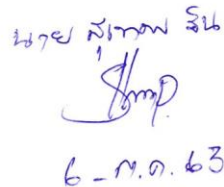 นาย สุเทพ สิน
6 - ก.ค. 63